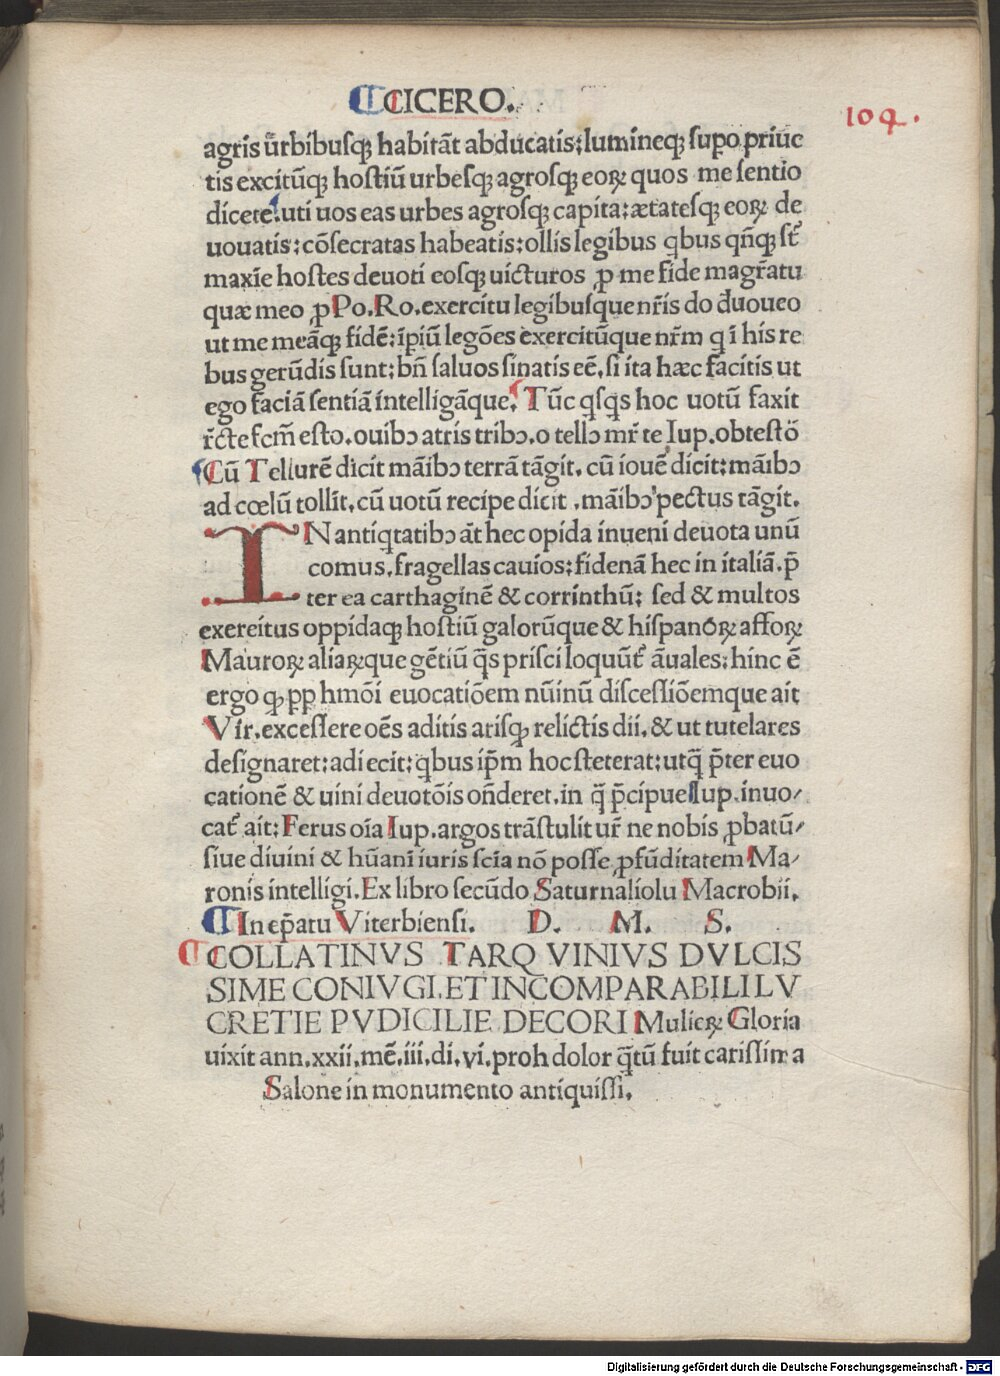 CICERO.
104.
agris ũrbibusqꝫ habitãt abducatis:lumineqꝫ supo priuc
tis excitũqꝫ hostiũ urbesqꝫ agrosqꝫ eoꝝ quos me sentio
dicere.uti uos eas urbes agrosqꝫ capita:ætatesqꝫ eoꝝ de
uouatis:cõsecratas habeatis:ollis legibus qbus qñqꝫ st̃
maxie hostes deuoti eosqꝫ uicturos ꝓ me fide magr̃atu
quæ meo ꝓ Po.Ro.exercitu legibusque nr̃is do đuoueo
ut me meãqꝫ fidẽ:ĩpiũ legões exercitũque nr̃m q ĩ his re
bus gerũdis sunt:bñ saluos sinatis eẽ.si ita hæc facitis ut
ego faciã sentiã intelligãque. Tũc qsqs hoc uotũ faxit
r̃cte fcm̃ esto.ouibꝰ atris tribꝰ.o tellꝰ mr̃ te Iup.obtestõ
Cũ Tellurẽ dicit mãibꝰ terrã tãgit. cũ iouẽ dicit:mãibꝰ
ad cœlũ tollit.cũ uotũ recipe dicit .mãibꝰ pectus tãgit.
IN antiqtatibꝰ ãt hec opida inueni deuota unũ
comus.fragellas cauios:fidenã hec in italiã.p̃
ter ea carthaginẽ & corrinthũ: sed & multos
exereitus oppidaqꝫ hostiũ galorũque & hispanoꝝ affoꝝ
Mauroꝝ aliaꝝque gẽtiũ q̃s prisci loquũt̃ ãuales:hinc ẽ
ergo ꝙ ꝓpp hmõi euocatiõem nũinũ discessiõemque ait
Vir.excessere oẽs aditis arisqꝫ relictis dii.& ut tutelares
designaret:adiecit:qbus ip̃m hoc steterat:utq̃ p̃ter euo
cationẽ & uini deuotõis oñderet.in q̃ p̃cipue Iup.inuo/
cat̃ ait:Ferus oĩa Iup.argos trãstulit ur̃ ne nobis ꝓbatũ/
siue diuini & hũani iuris scĩa nõ posse ꝓfũditatem Ma/
ronis intelligi.Ex libro secũdo Saturnaliolu Macrobii.
In ep̃atu Viterbiensi. D. M. S.
COLLATINVS TARQ VINIVS DVLCIS
SIME CONIVGI.ET INCOMPARABILI LV
CRETIE PVDICILIE DECORI Mulieꝝ Gloria
uixit ann.xxii.mẽ.iii.di.vi.proh dolor q̃tũ fuit carissima
Salone in monumento antiquissi.
Digitalisierung gefördert durch die Deutsche Forschungsgemeinschaft - DFG